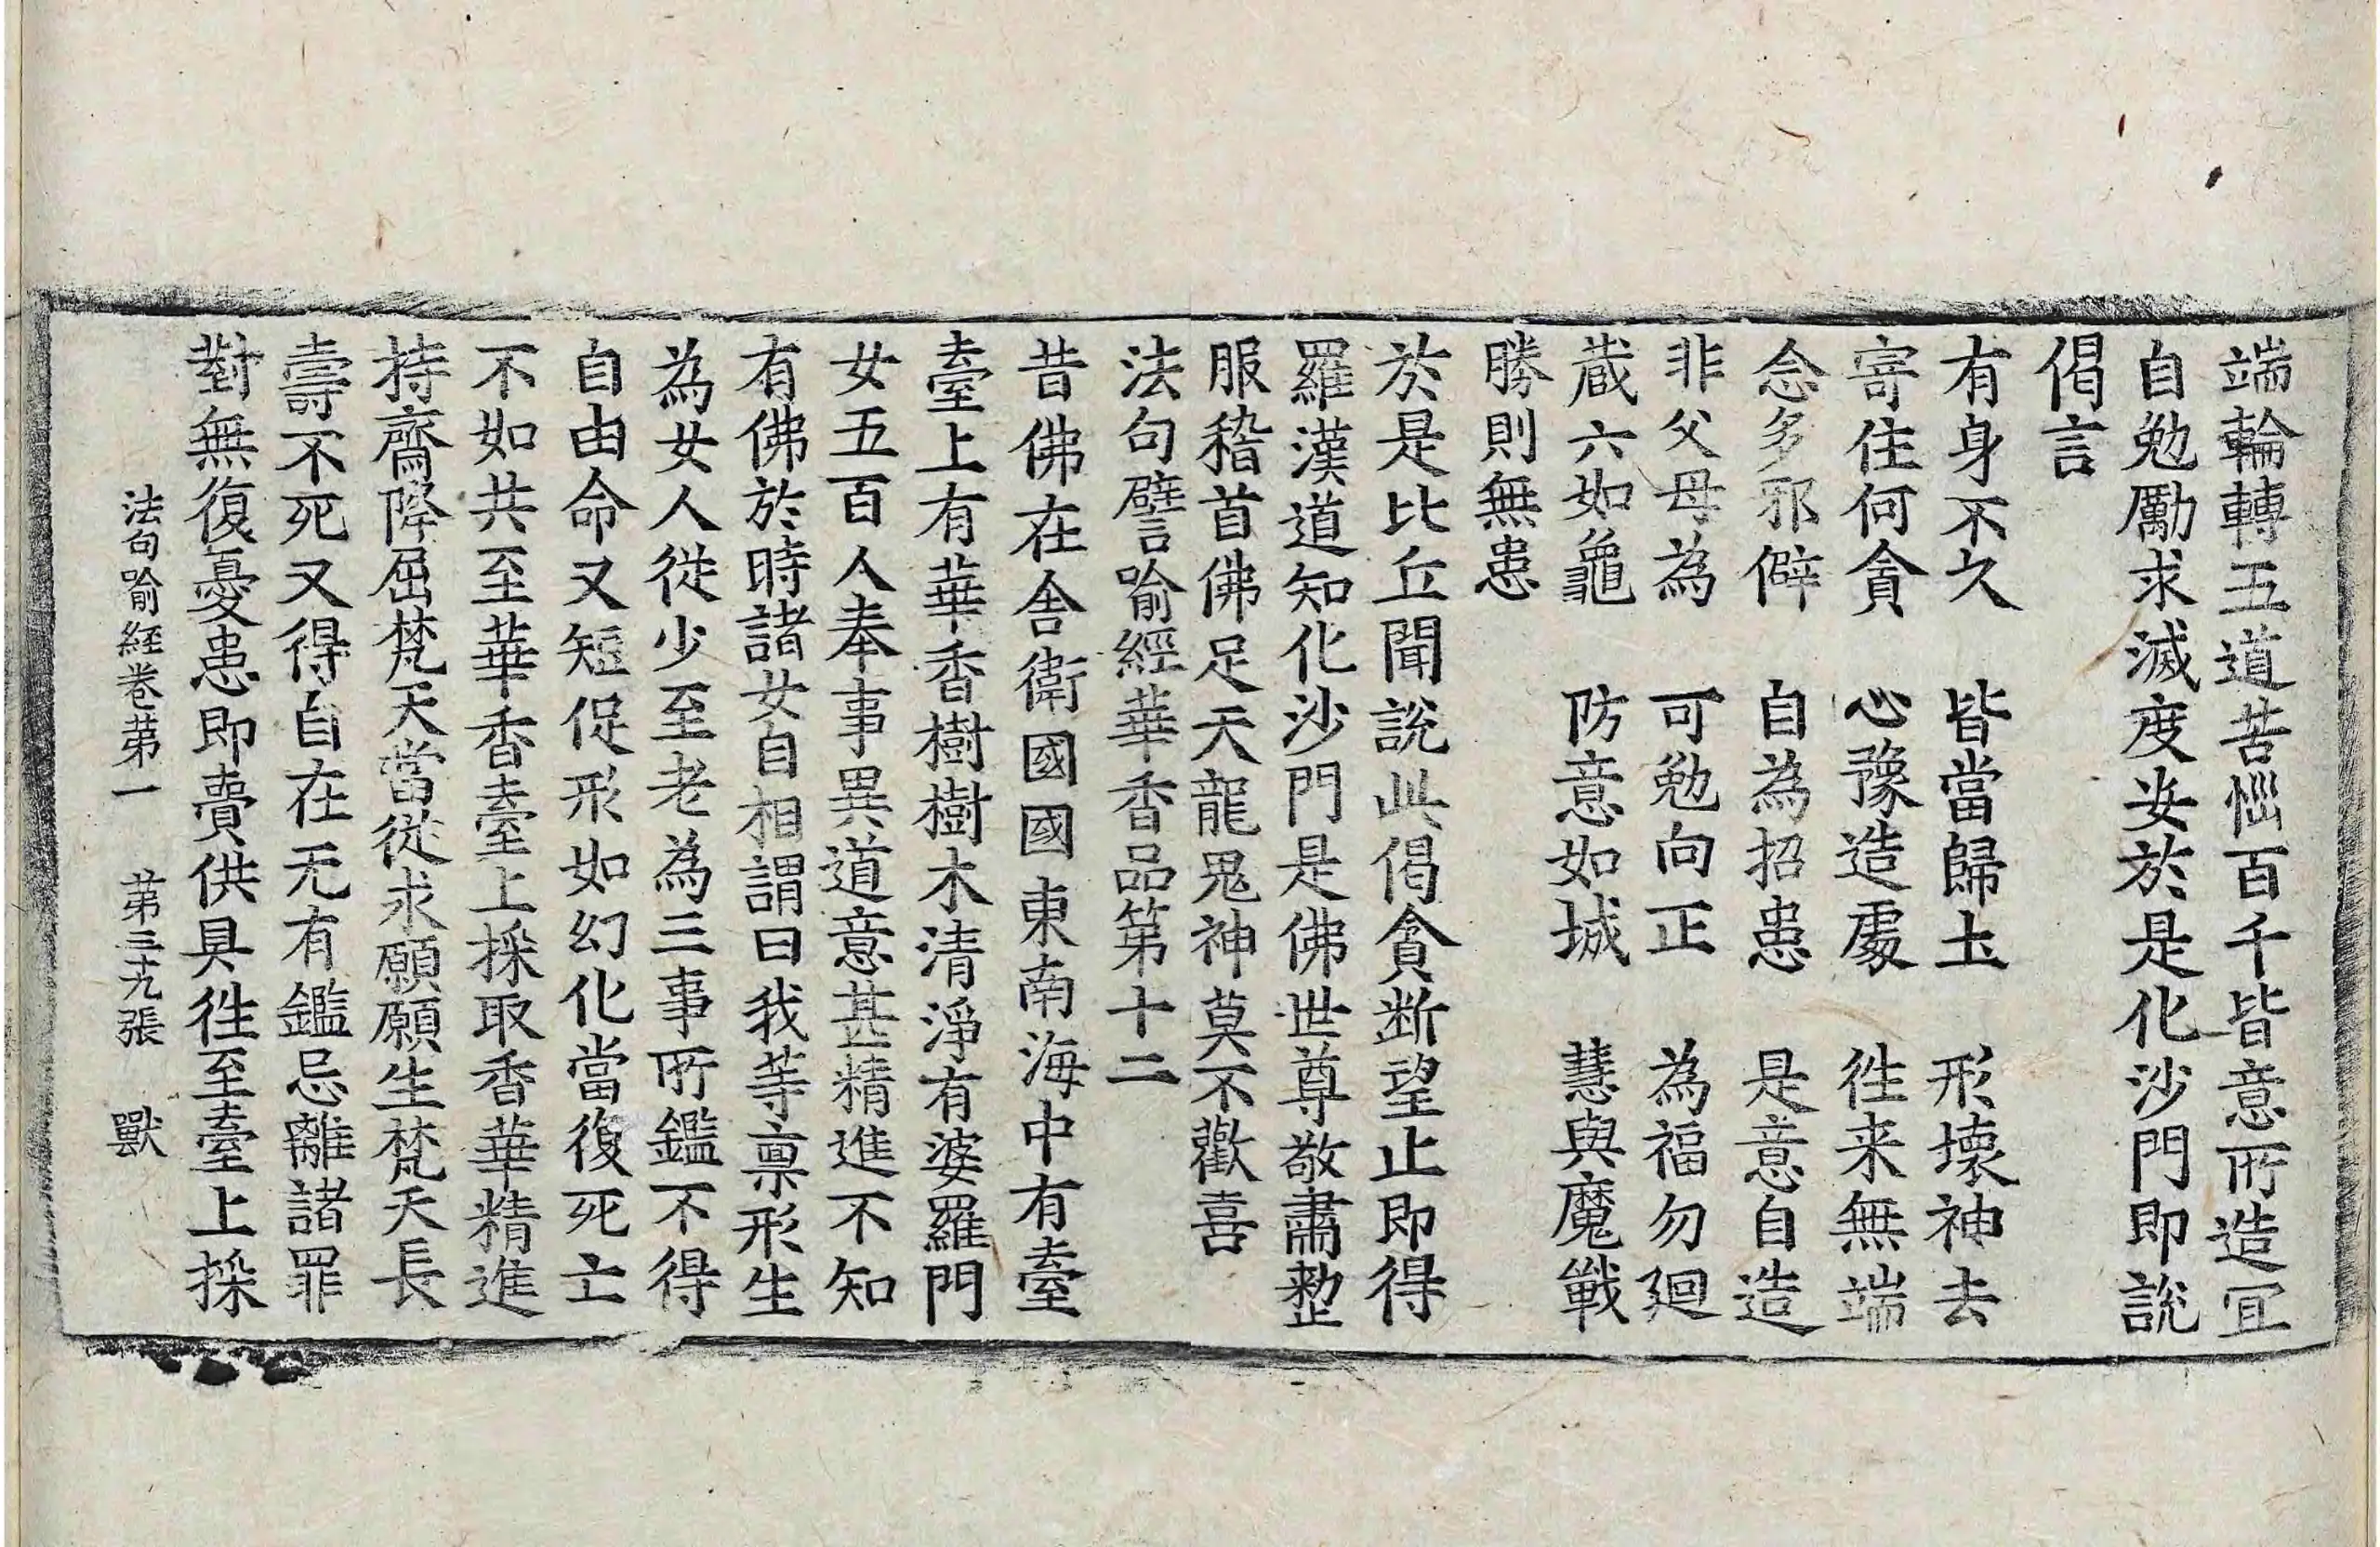 端輪轉五道苦惱百千皆意所造宜
自勉勵求滅度安於是化沙門即說
偈言
有身不久　皆當歸土　形壞神去
寄住何貪　心豫造處　往来無端
念多邪僻　自為招患　是意自造
非父母為　可勉向正　為福勿廻
蔵六如龜　防意如城　慧與魔戰
勝則無患
於是比丘聞說此偈貪断望止即得
羅漢道知化沙門是佛世尊敬肅整
服稽首佛足天龍鬼神莫不歡喜
法句譬喻經華香品第十二
昔佛在舍衛國國東南海中有臺
臺上有華香樹樹木清淨有婆羅門
女五百人奉事異道意甚精進不知
有佛於時諸女自相謂曰我等禀形生
為女人從少至老為三事所鑑不得
自由命又短促形如幻化當復死亡
不如共至華香臺上採取香華精進
持齋降屈梵天當從求願願生梵天長
壽不死又得自在无有鑑忌離諸罪
對無復憂患即賷供具往至臺上採
法句喻經卷第一　第三十九張　獸